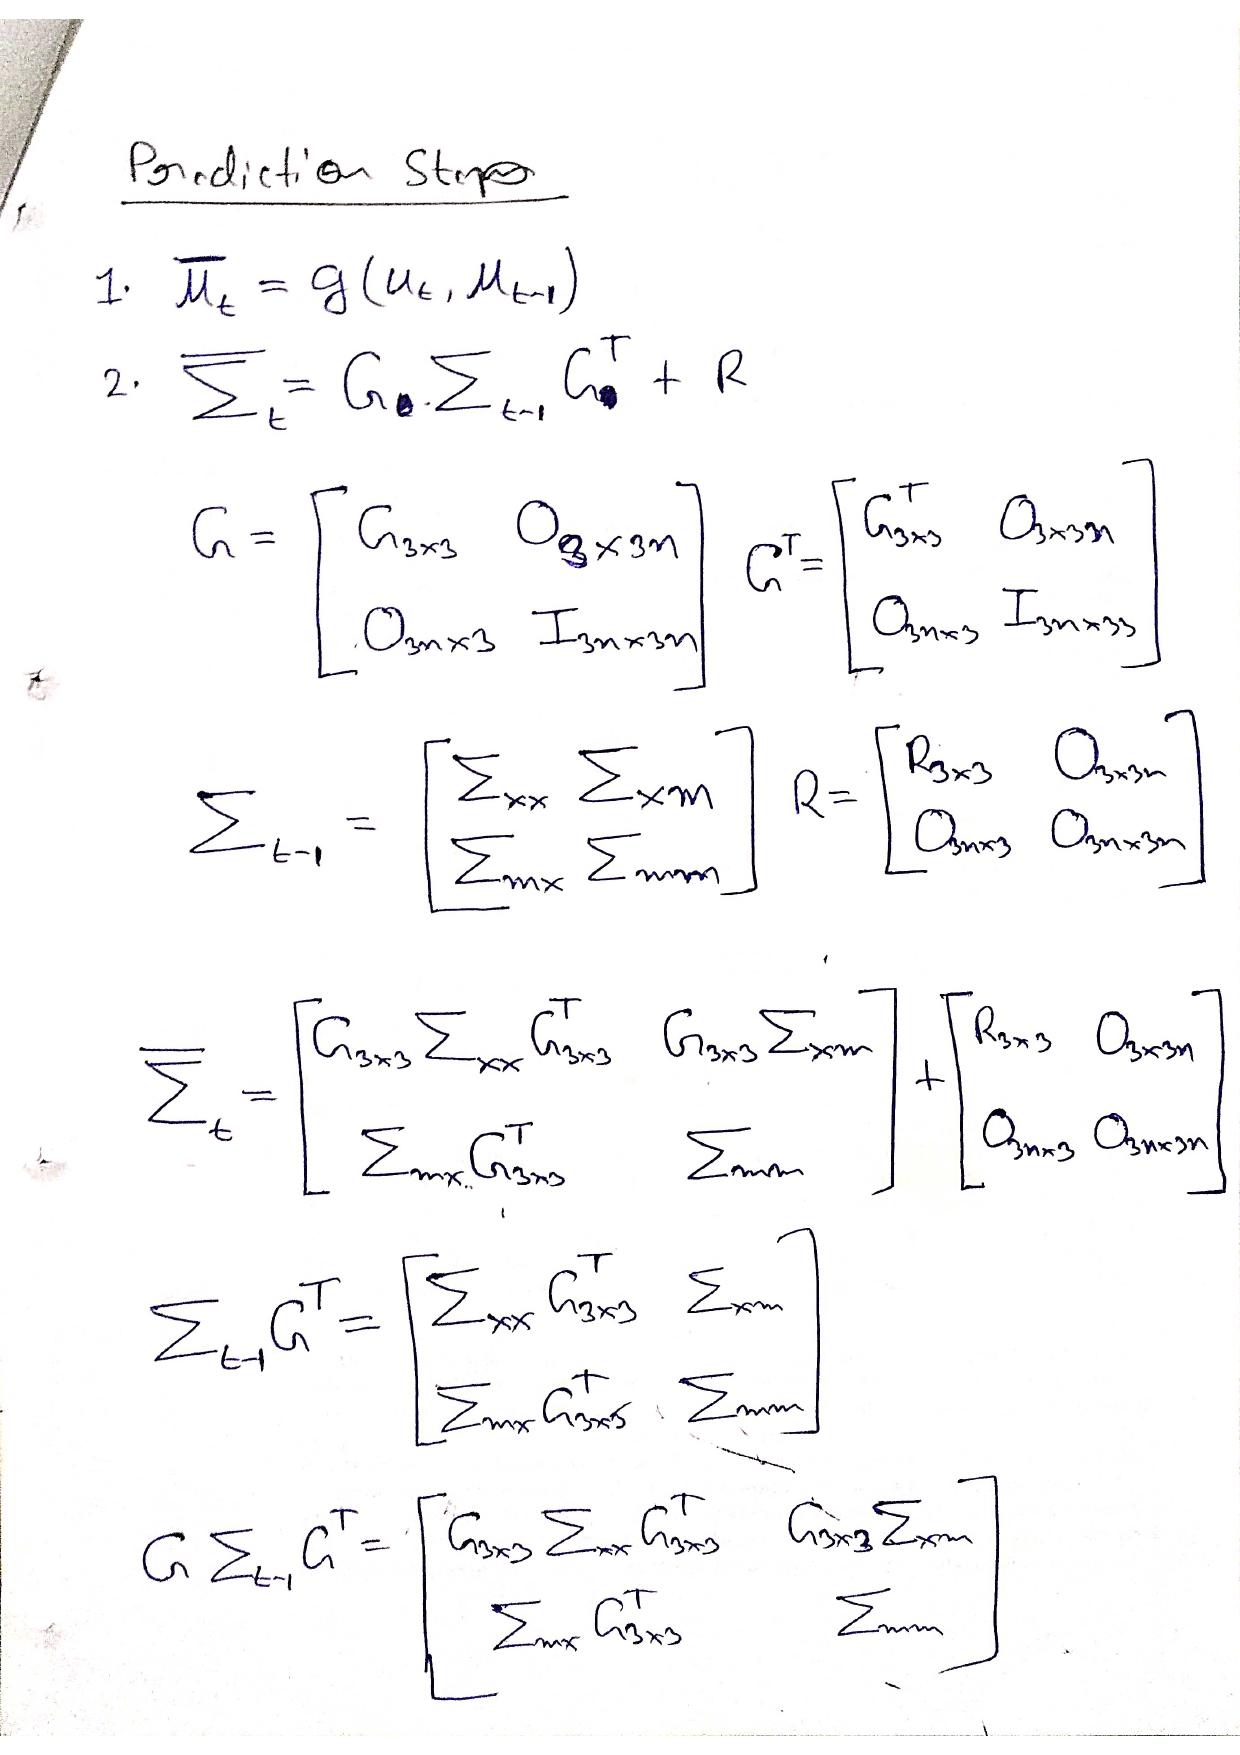 Prediction Steps
1. μ̄_t = g(u_t, μ_{t-1})
2. Σ̄_t = G . Σ_{t-1} G^T + R
G = [ G_{3x3} O_{3x3n} ; O_{3nx3} I_{3nx3n} ] G^T = [ G^T_{3x3} O_{3x3n} ; O_{3nx3} I_{3nx33} ]
Σ_{t-1} = [ Σ_{xx} Σ_{xm} ; Σ_{mx} Σ_{mm} ] R = [ R_{3x3} O_{3x3n} ; O_{3nx3} O_{3nx3n} ]
Σ̄_t = [ G_{3x3} Σ_{xx} G^T_{3x3} G_{3x3} Σ_{xm} ; Σ_{mx} G^T_{3x3} Σ_{mm} ] + [ R_{3x3} O_{3x3n} ; O_{3nx3} O_{3nx3n} ]
Σ_{t-1} G^T = [ Σ_{xx} G^T_{3x3} Σ_{xm} ; Σ_{mx} G^T_{3x3} Σ_{mm} ]
G Σ_{t-1} G^T = [ G_{3x3} Σ_{xx} G^T_{3x3} G_{3x3} Σ_{xm} ; Σ_{mx} G^T_{3x3} Σ_{mm} ]